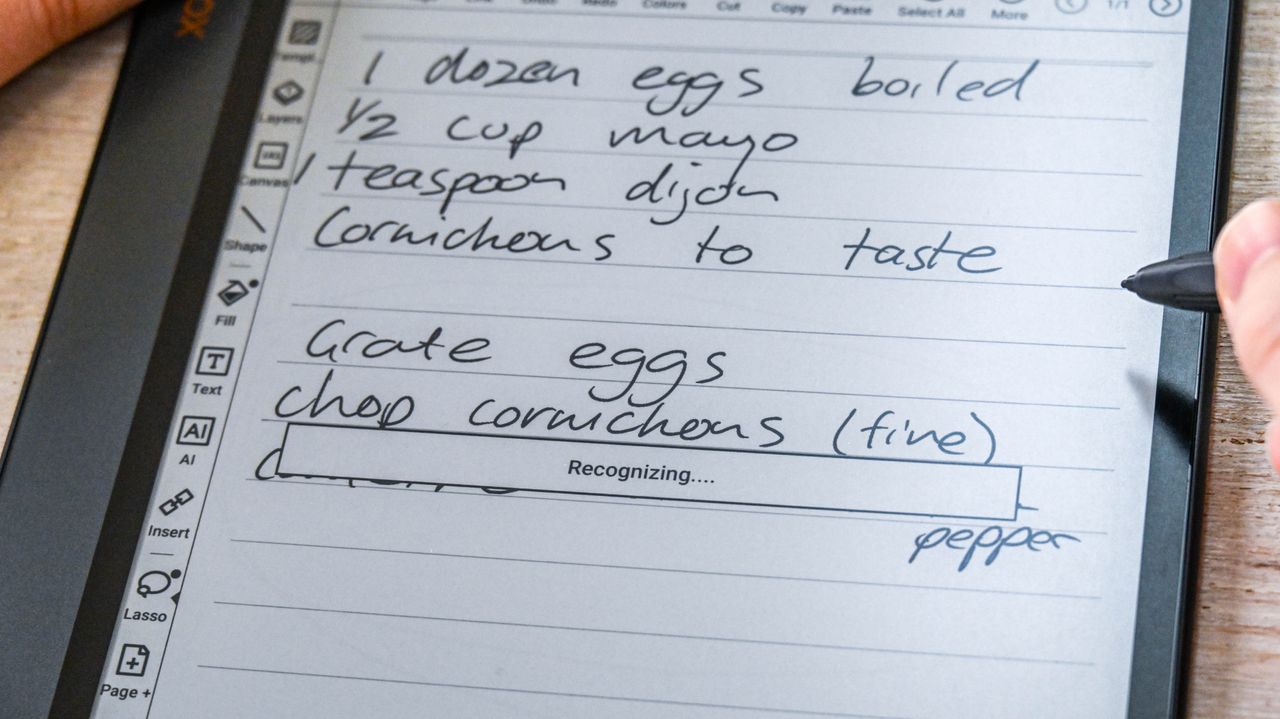 BOOX
Undo Redo Colors Cut Copy Paste Select All More 1/1
Layers
Canvas
Shape
Fill
Text
AI
AI
Insert
Lasso
Page +
1 dozen eggs boiled
1/2 cup mayo
1 teaspoon dijon
Cornichons to taste
Grate eggs
chop cornichons (fine)
Recognizing....
pepper